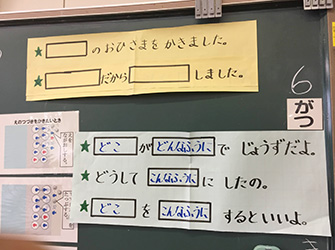 ★□のおひさまをかきました。
★□だから□しました。
6
がつ
えのつづきをかきたいとき
★どこがどんなふうにでじょうずだよ。
★どうしてこんなふうにしたの。
★どこをこんなふうにするといいよ。